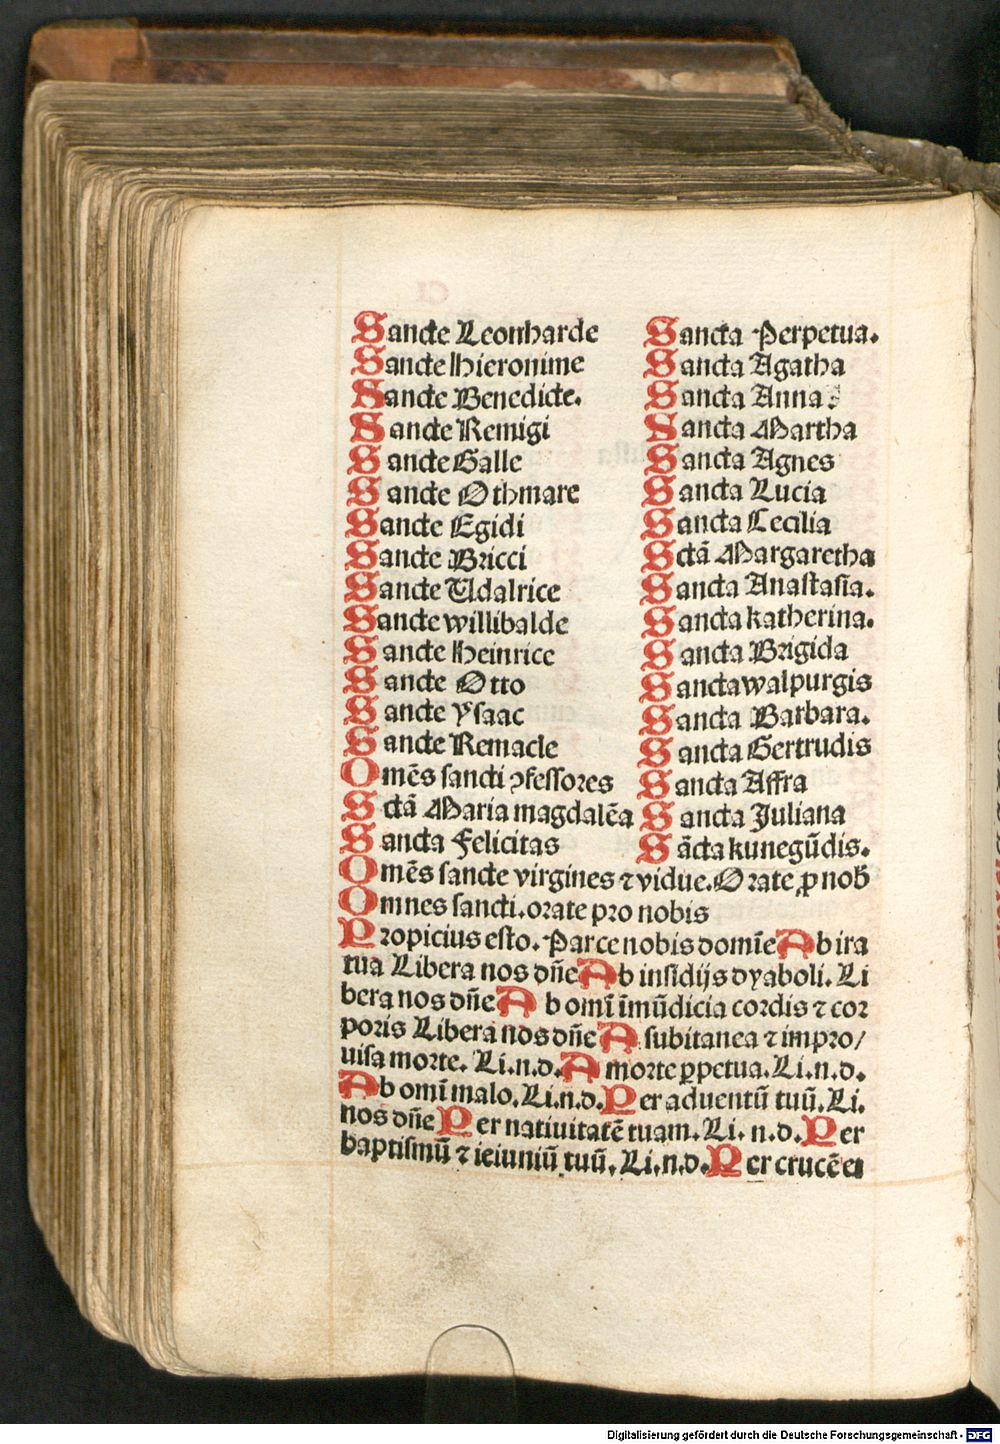 Sancte Leonharde
Sancte Hieronime
Sancte Benedicte.
Sancte Remigi
Sancte Galle
Sancte Othmare
Sancte Egidi
Sancte Bricci
Sancte Udalrice
Sancte willibalde
Sancte Heinrice
Sancte Otto
Sancte Ysaac
Sancte Remacle
Omēs sancti ꝯfessores
Sctā Maria magdalēa
Sancta Felicitas
Sancta Perpetua.
Sancta Agatha
Sancta Anna
Sancta Martha
Sancta Agnes
Sancta Lucia
Sancta Cecilia
Sctā Margaretha
Sancta Anastasia.
Sancta katherina.
Sancta Brigida
Sancta walpurgis
Sancta Barbara.
Sancta Gertrudis
Sancta Affra
Sancta Juliana
Sācta kunegūdis.
Omēs sancte virgines ⁊ vidue. Orate ꝓ nob̄
Omnes sancti. orate pro nobis
Propicius esto. Parce nobis domīe Ab ira
tua Libera nos dn̄e Ab insidijs dyaboli. Li
bera nos dn̄e Ab omī īmūdicia cordis ⁊ cor
poris Libera nos dn̄e A subitanea ⁊ impro/
uisa morte. Li.n.d. A morte ꝑpetua. Li.n.d.
Ab omī malo. Li.n.d. Per aduentū tuū. Li.
nos dn̄e Per natiuitatē tuam. Li. n.d. Per
baptismū ⁊ ieiuniū tuū. Li.n.d. Per crucē et
Digitalisierung gefördert durch die Deutsche Forschungsgemeinschaft - DFG